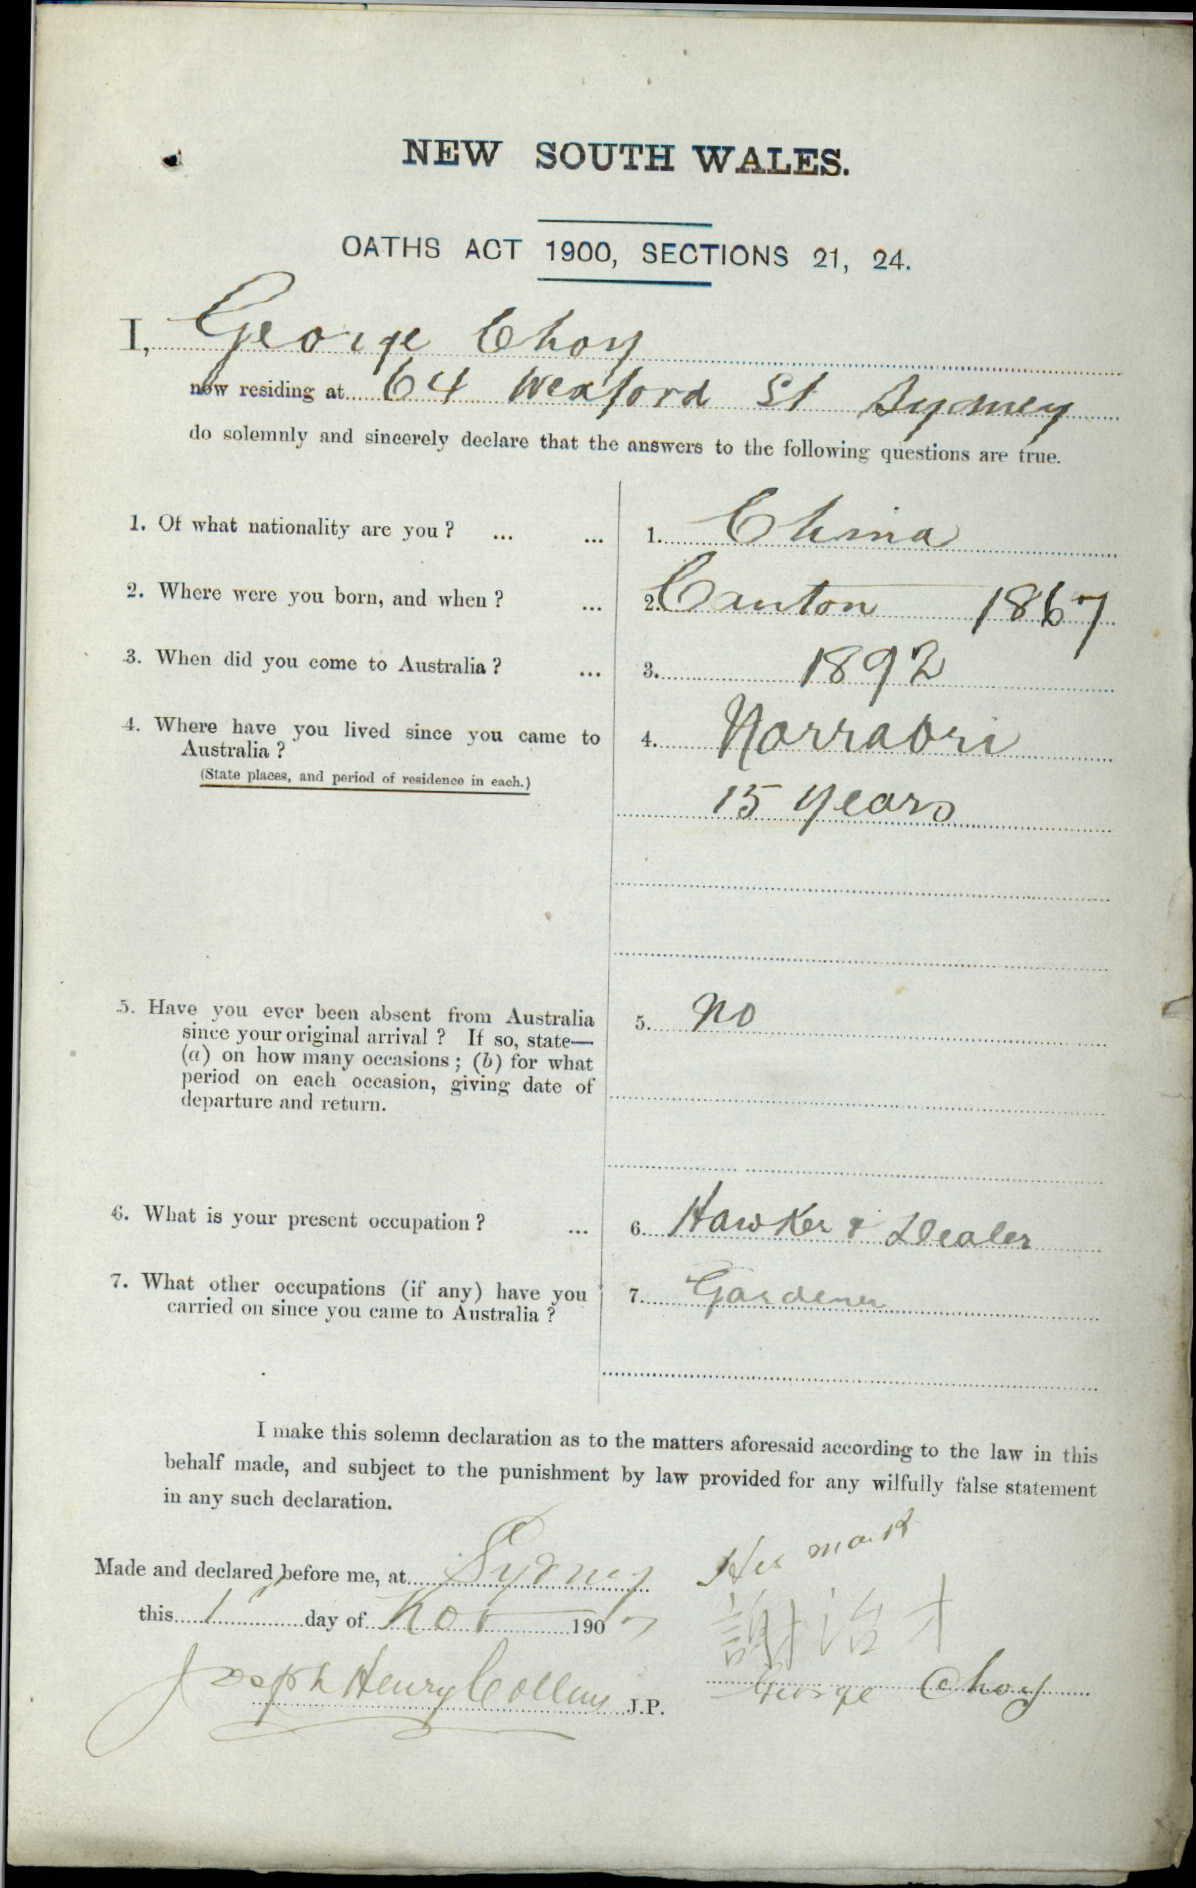 NEW SOUTH WALES.
OATHS ACT 1900, SECTIONS 21, 24.
I, George Choy
now residing at 64 Wexford St Sydney
do solemnly and sincerely declare that the answers to the following questions are true.
1. Of what nationality are you ? ... ... 1. China
2. Where were you born, and when ? ... 2. Canton 1867
3. When did you come to Australia ? ... 3. 1892
4. Where have you lived since you came to 4. Narrabri
Australia ?
(State places, and period of residence in each.)
15 years
5. Have you ever been absent from Australia 5. No
since your original arrival ? If so, state—
(a) on how many occasions ; (b) for what
period on each occasion, giving date of
departure and return.
6. What is your present occupation ? ... 6. Hawker & Dealer
7. What other occupations (if any) have you 7. Gardener
carried on since you came to Australia ?
I make this solemn declaration as to the matters aforesaid according to the law in this
behalf made, and subject to the punishment by law provided for any wilfully false statement
in any such declaration.
His mark
Made and declared before me, at Sydney
this 1st day of Nov 1907
謝治才
Joseph Henry Collins J.P.
George Choy